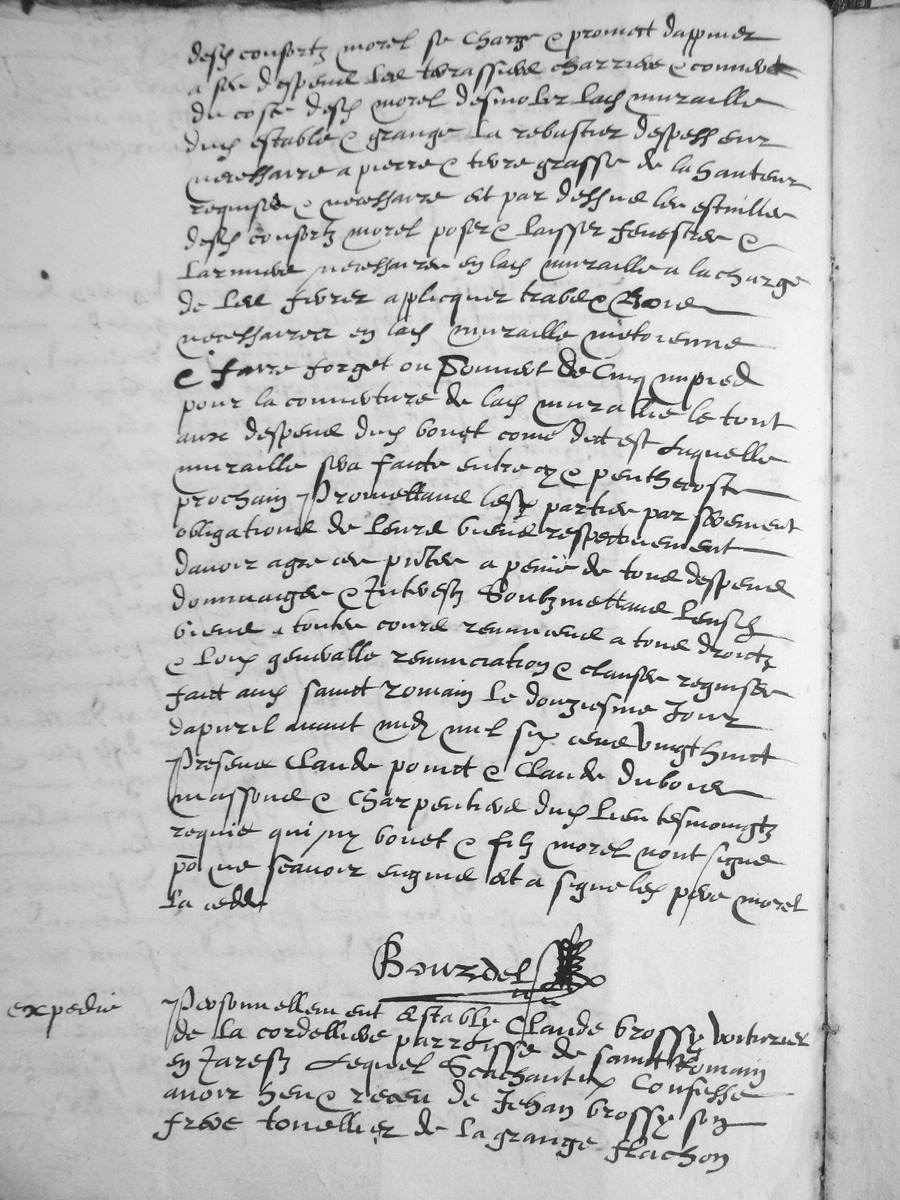 desd consortz morel se charge & promect dappuier
a ses despens les terrassieres charriere & couvert
du coste desd morel desmolir lad muraille
dud estable & grange la rebastier despesseur
necessaire a pierre & terre grasse de la hauteur
requise & necessaire et par dessus les
desd consortz morel poser & laisser fenestres &
larmiere necessaires en lad muraille a la charge
de les ferrer applicquer trabz &
necessaires en lad muraille mitoienne
& faire forget ou de cinq my pied
pour la couverture de lad muraille le tout
aux despens dud bouet come dict est Laquelle
muraille sera faicte entre cy & penthecoste
prochain Promettans lesd parties par serement
obligations de leurs biens respectivement
davoir agre ces pntes a peine de tous despens
dommaiges & Interestz Soubzmettans leursd
biens a toutes cours renonceans a tous droictz
& Loix generalle renunciation & clauses requises
faict aud sainct romain le douziesme Jour
dapvril avant midy mil six cens vingt huict
Presens Claude poinct & Claude dubois
massons & charpentiers dud lieu tesmoingtz
requis qui ny bouet & filz morel nont signe
po ne scavoir enquis et a signe led pere morel
la cedde
Bourdel
expedie
Personnellement estably Claude brossy voiturier
de la cordelliere parroisse de sainct Romain
en Jarestz Lequel Scachant Confesse
avoir heu & receu de Jehan brossy son
frere tonellier de la grange flachon